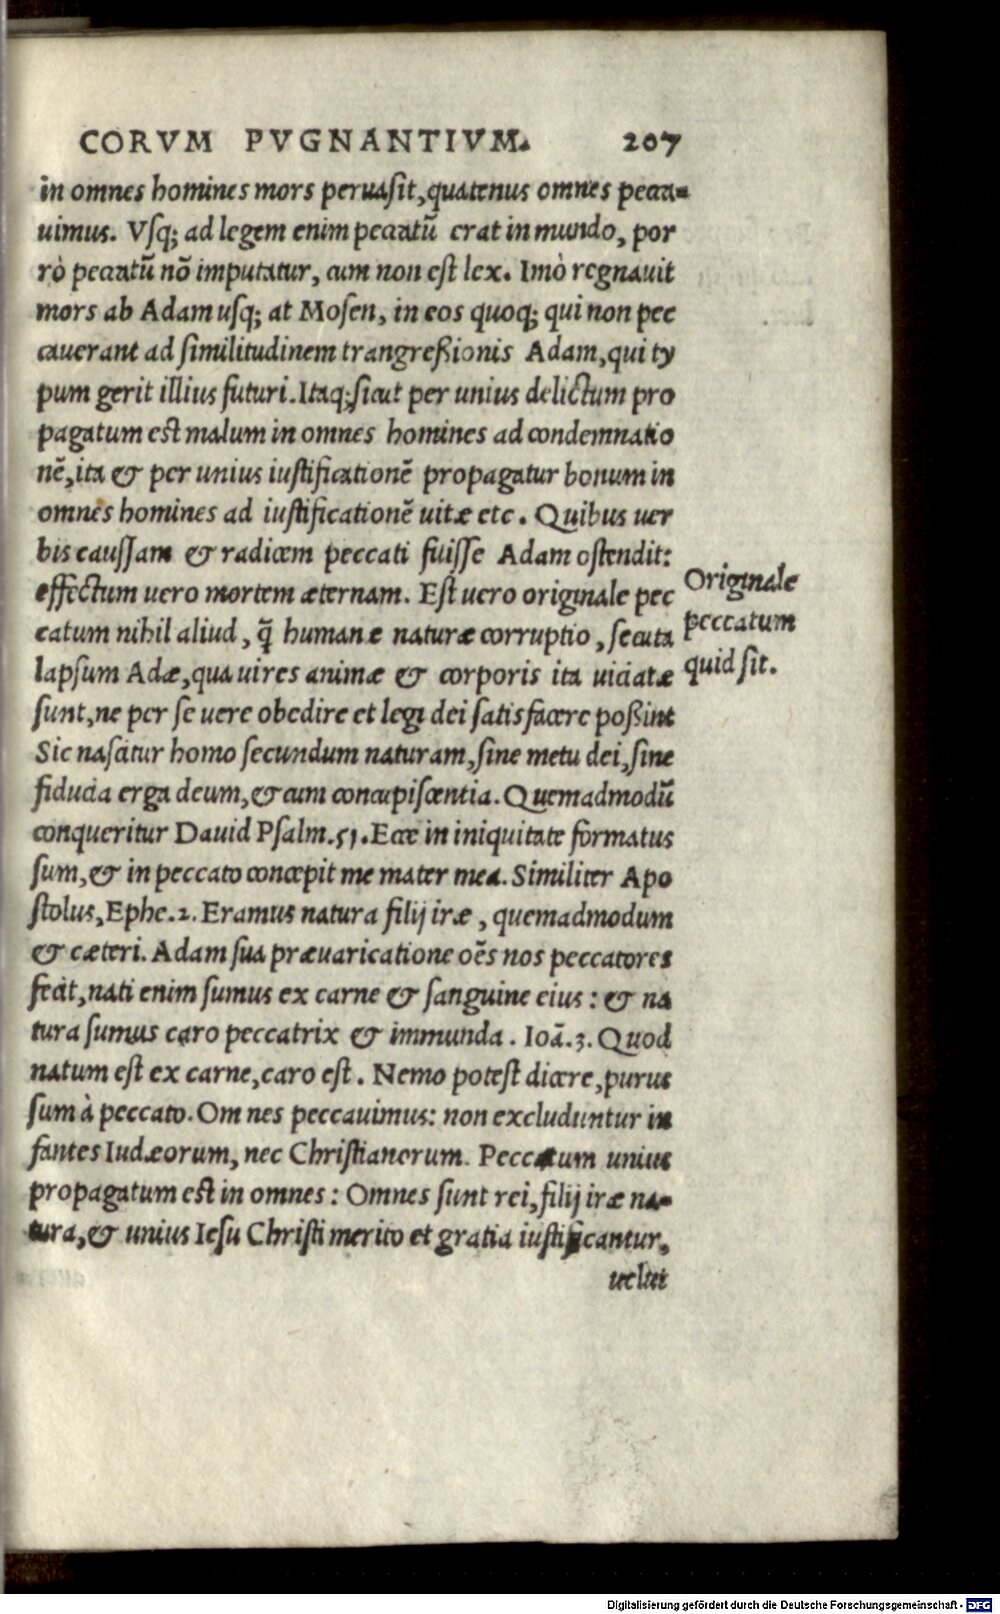 CORVM PVGNANTIVM. 207
in omnes homines mors peruasit, quatenus omnes pecca-
uimus. Vsq; ad legem enim peccatũ erat in mundo, por
rò peccatũ nõ imputatur, cum non est lex. Imò regnauit
mors ab Adam usq; at Mosen, in eos quoq; qui non pec
cauerant ad similitudinem trangreßionis Adam, qui ty
pum gerit illius futuri. Itaq; sicut per unius delictum pro
pagatum est malum in omnes homines ad condemnatio
nẽ, ita & per unius iustificationẽ propagatur bonum in
omnes homines ad iustificationẽ uitæ etc. Quibus uer
bis caussam & radicem peccati fuisse Adam ostendit:
effectum uero mortem æternam. Est uero originale pec
catum nihil aliud, q̃ humanæ naturæ corruptio, secuta
lapsum Adæ, qua uires animæ & corporis ita uiciatæ
sunt, ne per se uere obedire et legi dei satisfacere poßint
Sic nascitur homo secundum naturam, sine metu dei, sine
fiducia erga deum, & cum concupiscentia. Quemadmodũ
conqueritur Dauid Psalm. 51. Ecce in iniquitate formatus
sum, & in peccato concepit me mater mea. Similiter Apo
stolus, Ephe. 2. Eramus natura filij iræ, quemadmodum
& cæteri. Adam sua præuaricatione oẽs nos peccatores
fecit, nati enim sumus ex carne & sanguine eius: & na
tura sumus caro peccatrix & immunda. Ioã. 3. Quod
natum est ex carne, caro est. Nemo potest dicere, purus
sum à peccato. Om nes peccauimus: non excluduntur in
fantes Iudæorum, nec Christianorum. Peccatum unius
propagatum est in omnes: Omnes sunt rei, filij iræ na-
tura, & unius Iesu Christi merito et gratia iustificantur,
uelut
Originale
peccatum
quid sit.
Digitalisierung gefördert durch die Deutsche Forschungsgemeinschaft - DFG